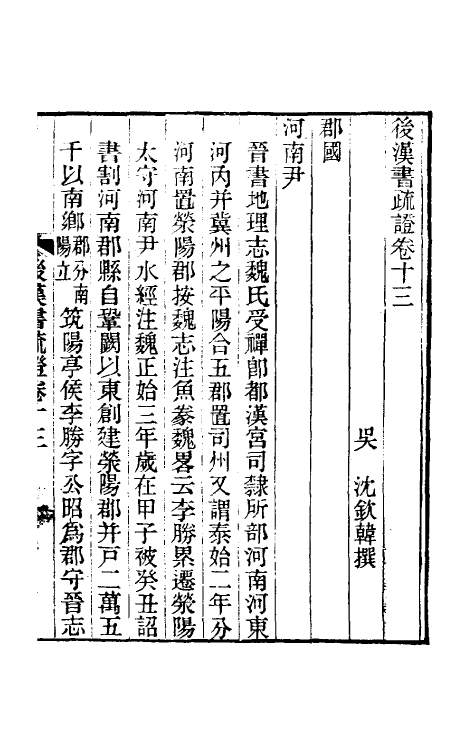 後漢書疏證卷十三
吳　沈欽韓撰
郡國
河南尹
晉書地理志魏氏受禪卽都漢宮司隸所部河南河東
河內并冀州之平陽合五郡置司州又謂泰始二年分
河南置滎陽郡按魏志注魚豢魏畧云李勝累遷滎陽
太守河南尹水經注魏正始三年歲在甲子被癸丑詔
書割河南郡縣自鞏闕以東創建滎陽郡并戸二萬五
千以南鄉郡分南陽立筑陽亭侯李勝字公昭爲郡守晉志
後漢書疏證卷十三